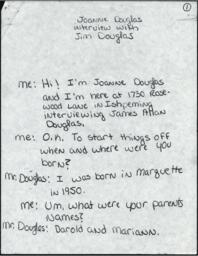 ①
Joanne Douglas
interview with
Jim Douglas
me: Hi! I'm Joanne Douglas
and I'm here at 1730
wood Lane in Ishpeming
interviewing James Allan
Douglas.
me: O.k. To start things off
when and where were you
born?
Mr. Douglas: I was born in Marquette
in 1950.
me: Um, what were your parents
names?
Mr. Douglas: Darold and Mariann.